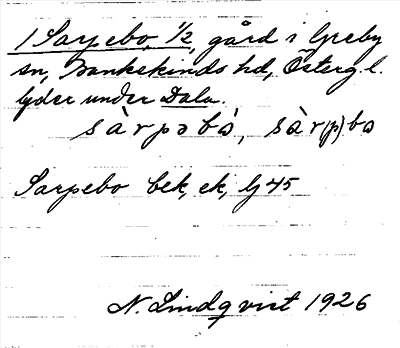 1 Sarpebo, 1/2, gård i Greby
sn, Bankekinds hd, Österg. l.
lyder under Dala.
sàrpəbò, sàr(p)bo
Sarpebo bek, ek, lj 45
N. Lindqvist 1926